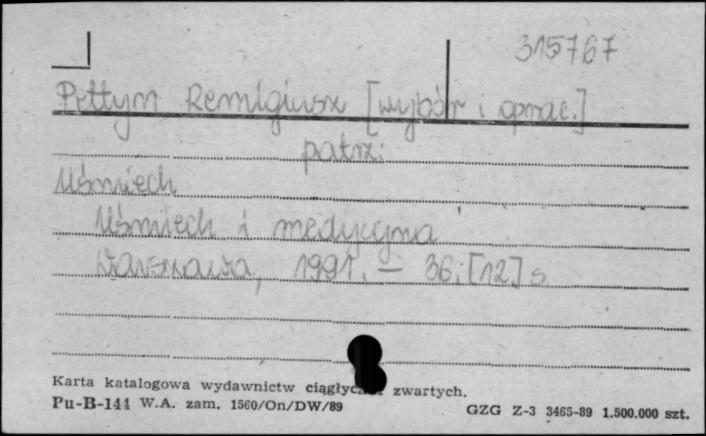 315767
Pettyn Remigiusz [wybór i oprac.]
patrz:
Uśmiech
Uśmiech i medycyna
Warszawa, 1991. — 36, [12] s
Karta katalogowa wydawnictw ciągłych zwartych.
Pu-B-144 W.A. zam. 1560/On/DW/89
GZG Z-3 3465-89 1.500.000 szt.